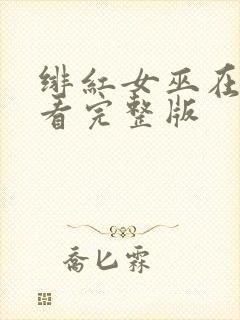 绯红女巫在
看完整版
乔匕霖